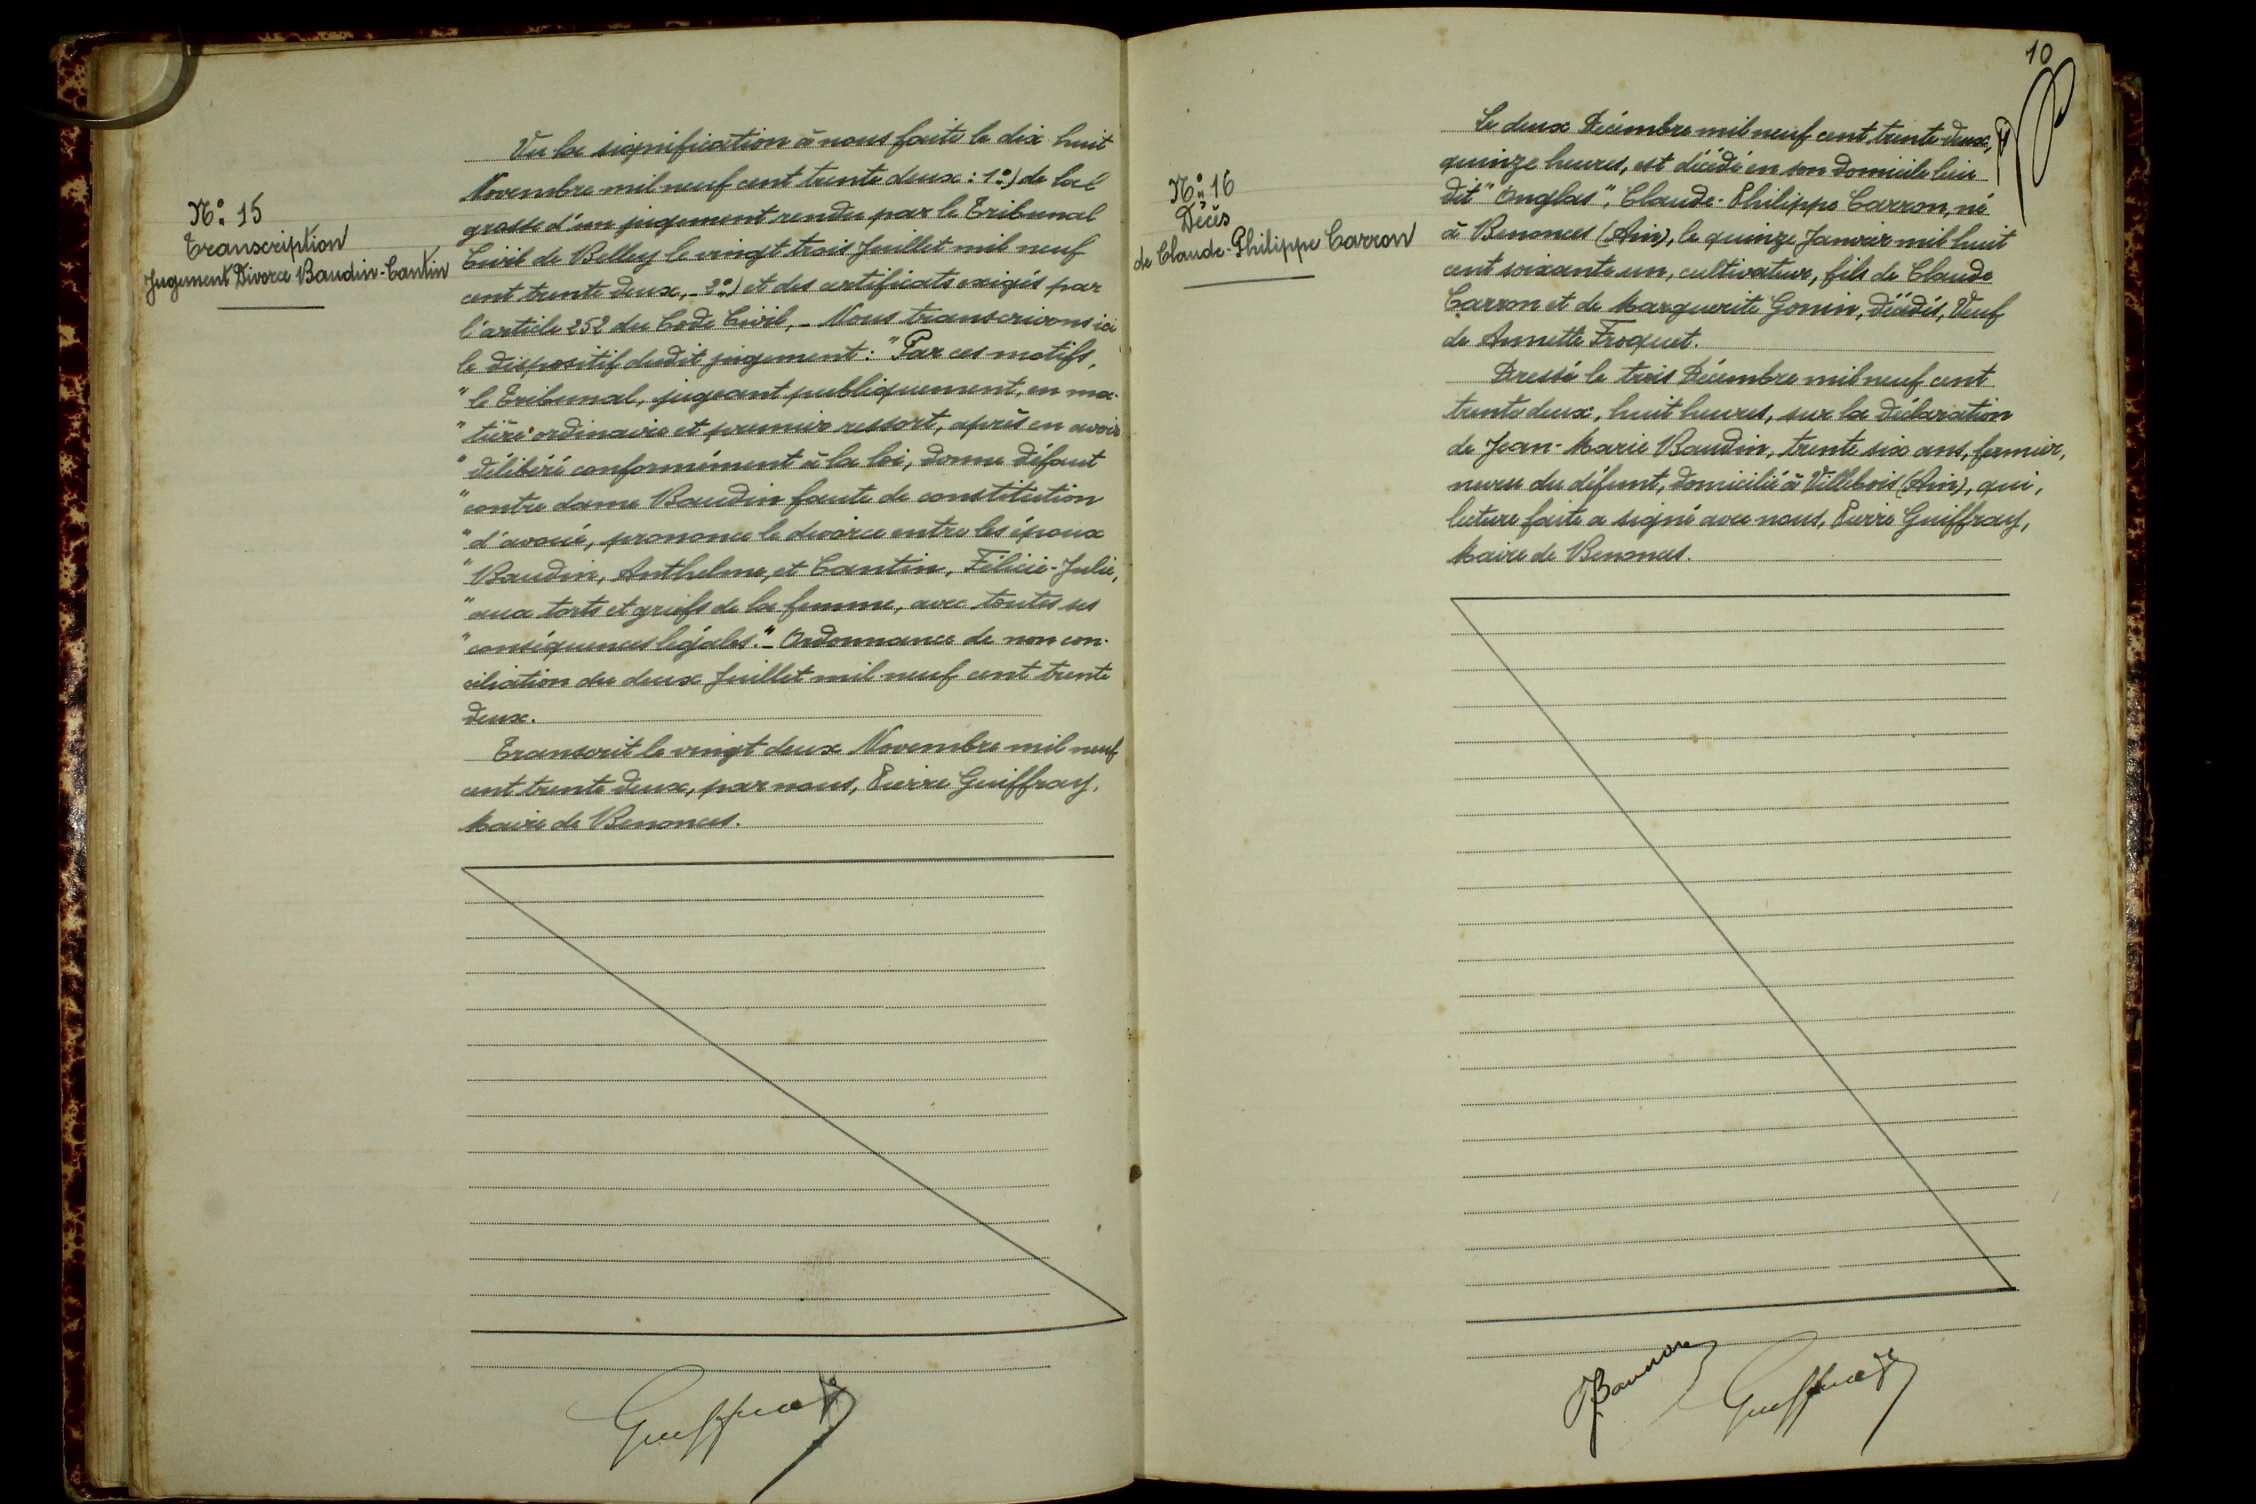 N° 15
Transcription
Jugement Divorce Baudin-Cantin
Vu la signification à nous faite le dix huit
Novembre mil neuf cent trente deux : 1°) de la
grosse d'un jugement rendu par le Tribunal
Civil de Belley le vingt trois Juillet mil neuf
cent trente deux, _ 2°) et des certificats exigés par
l'article 252 du Code Civil, _ Nous transcrivons ici
le dispositif dudit jugement : "Par ces motifs,
" le Tribunal, jugeant publiquement, en ma-
" tière ordinaire et premier ressort, après en avoir
" délibéré conformément à la loi, donne défaut
" contre dame Baudin faute de constitution
" d'avoué, prononce le divorce entre les époux
" Baudin, Anthelme, et Cantin, Félicie-Julie,
" aux torts et griefs de la femme, avec toutes ses
" conséquences légales." _ Ordonnance de non con-
ciliation du deux Juillet mil neuf cent trente
deux.
Transcrit le vingt deux Novembre mil neuf
cent trente deux, par nous, Pierre Guiffray,
Maire de Benonces.
Guiffray
10
N° 16
Décès
de Claude-Philippe Carron
Le deux Décembre mil neuf cent trente deux,
quinze heures, est décédé en son domicile lieu
dit "Onglas", Claude-Philippe Carron, né
à Benonces (Ain), le quinze Janvier mil huit
cent soixante un, cultivateur, fils de Claude
Carron et de Marguerite Gonin, décédés, Veuf
de Annette Froquet.
Dressé le trois Décembre mil neuf cent
trente deux, huit heures, sur la déclaration
de Jean-Marie Baudin, trente six ans, fermier,
neveu du défunt, domicilié à Villebois (Ain), qui,
lecture faite a signé avec nous, Pierre Guiffray,
Maire de Benonces.
Guiffray